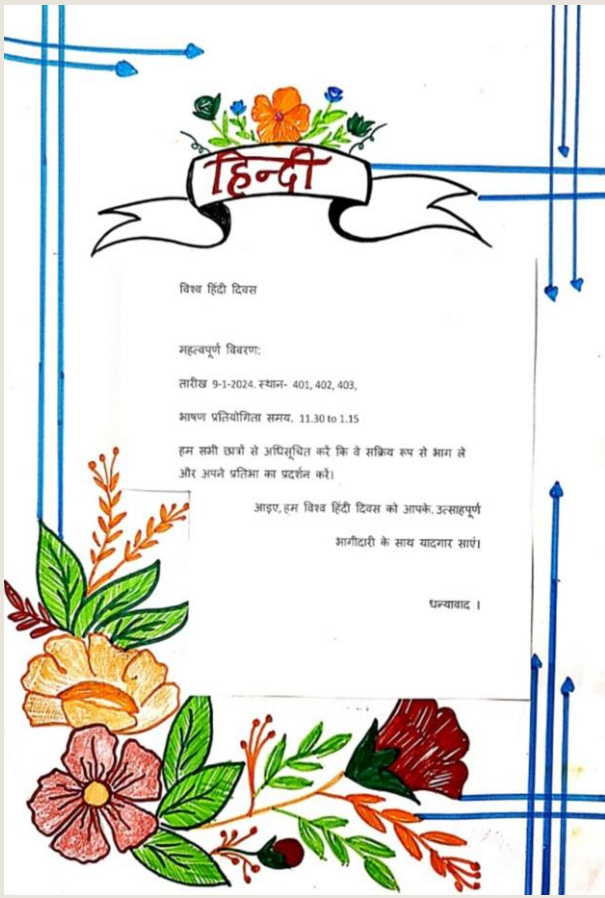 हिन्दी
विश्व हिंदी दिवस
महत्वपूर्ण विवरण:
तारीख 9-1-2024. स्थान- 401, 402, 403,
भाषण प्रतियोगिता समय. 11.30 to 1.15
हम सभी छात्रों से अधिसूचित करें कि वे सक्रिय रूप से भाग ले
और अपने प्रतिभा का प्रदर्शन करें।
आइए, हम विश्व हिंदी दिवस को आपके. उत्साहपूर्ण
भागीदारी के साथ यादगार साएं।
धन्यावाद ।